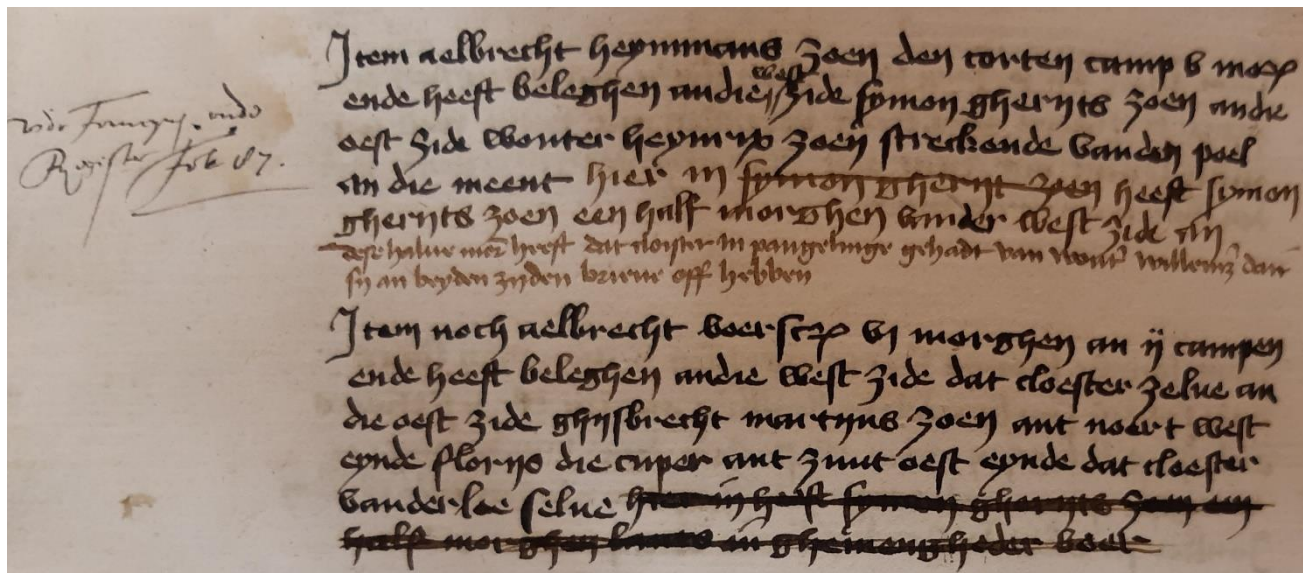 Item aelbrecht heynmans zoen den corten camp v morg
west
ende heeft beleghen andie zide symon gherijts zoen andie
oest zide wouter heynrix zoen streckende vanden poel
an die meent hier in symon gherijt zoen heeft symon
gherijts zoen een half morghen vander west zide an
dese halue mor heeft dat cloister in pangelinge gehadt van wout willemz dair
sij an beyden zyden brieue off hebben
Register fol 87.
Item noch aelbrecht voersc vi morghen an ij campen
ende heeft beleghen andie west zide dat cloester zelue an
die oest zide ghijsbrecht martijns zoen ant noert west
eynde florijs die cuper ant zuut oest eynde dat cloester
vanderloe selue hier in heeft symon gherijts zoen een
half morghen lants in ghemengheder voer